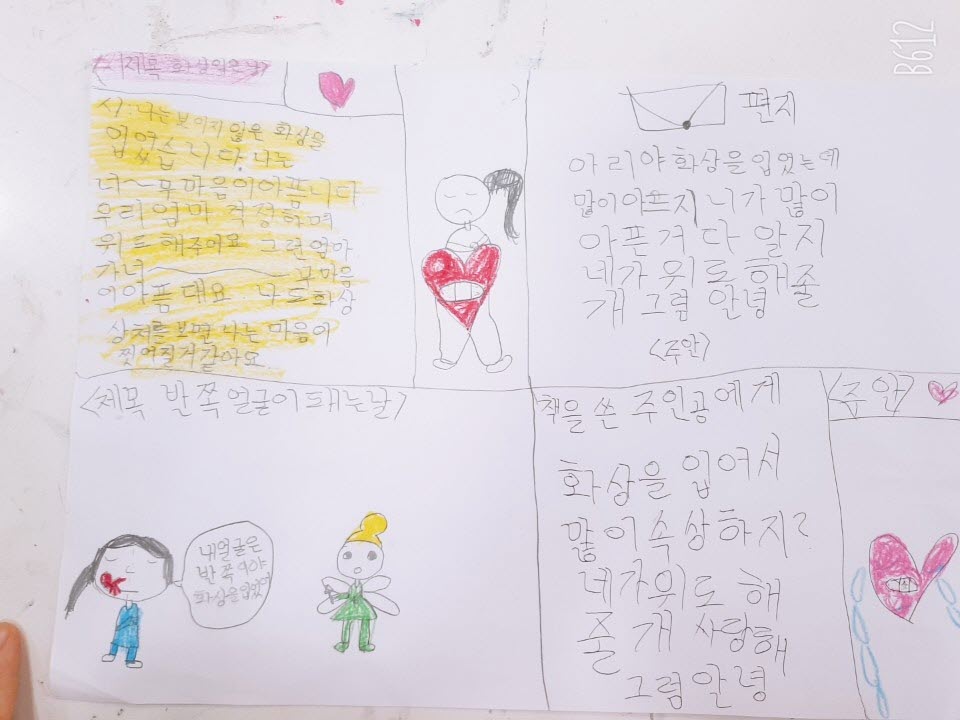 <제목 화상입은날>
시: 나는 보이지 않은 화상을
입었습니다. 나는
너~무 마음이 아픔니다
우리 엄마 걱정하며
위로해주어요 그런엄마
가 너 무마음
이 아픔대요 나도 화상
상처를 보면 나는 마음이
찢어질거같아요
편지
아리야 화상을 입었는데
많이 아프지 니가 많이
아픈거 다 알지
네가 위로해줄
개 그럼 안녕
<주안>
<제목 반쪽얼굴이 돼는날>
내얼굴은
반쪽이야
화상을입었어
책을 쓴 주인공에게
화상을 입어서
많이속상하지?
네가위로해
줄개 사랑해
그럼안녕
<주안>
B612